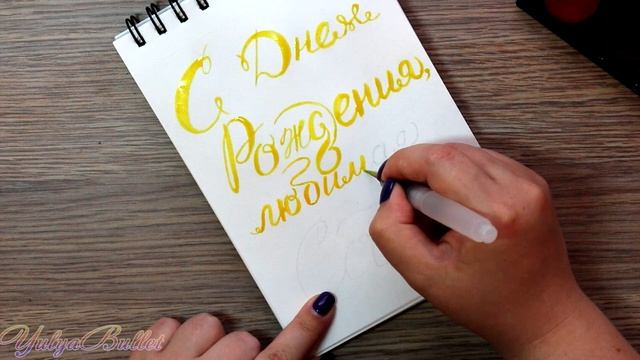 С Днем
Рождения,
любимая
YulyaBullet